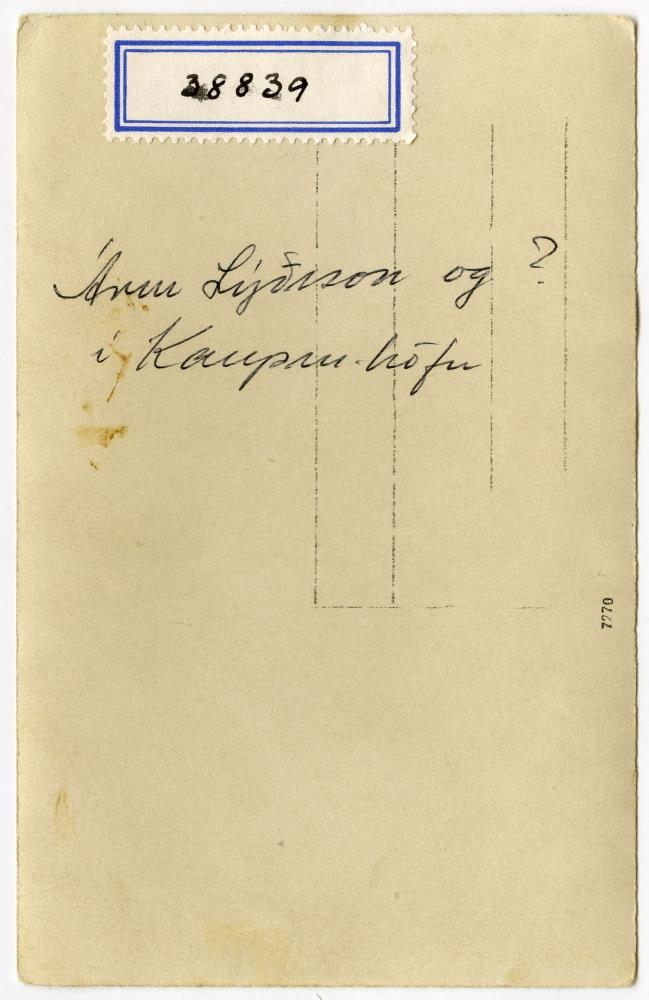 38839
Árni Lýðsson og ?
í Kaupm.höfn
7270